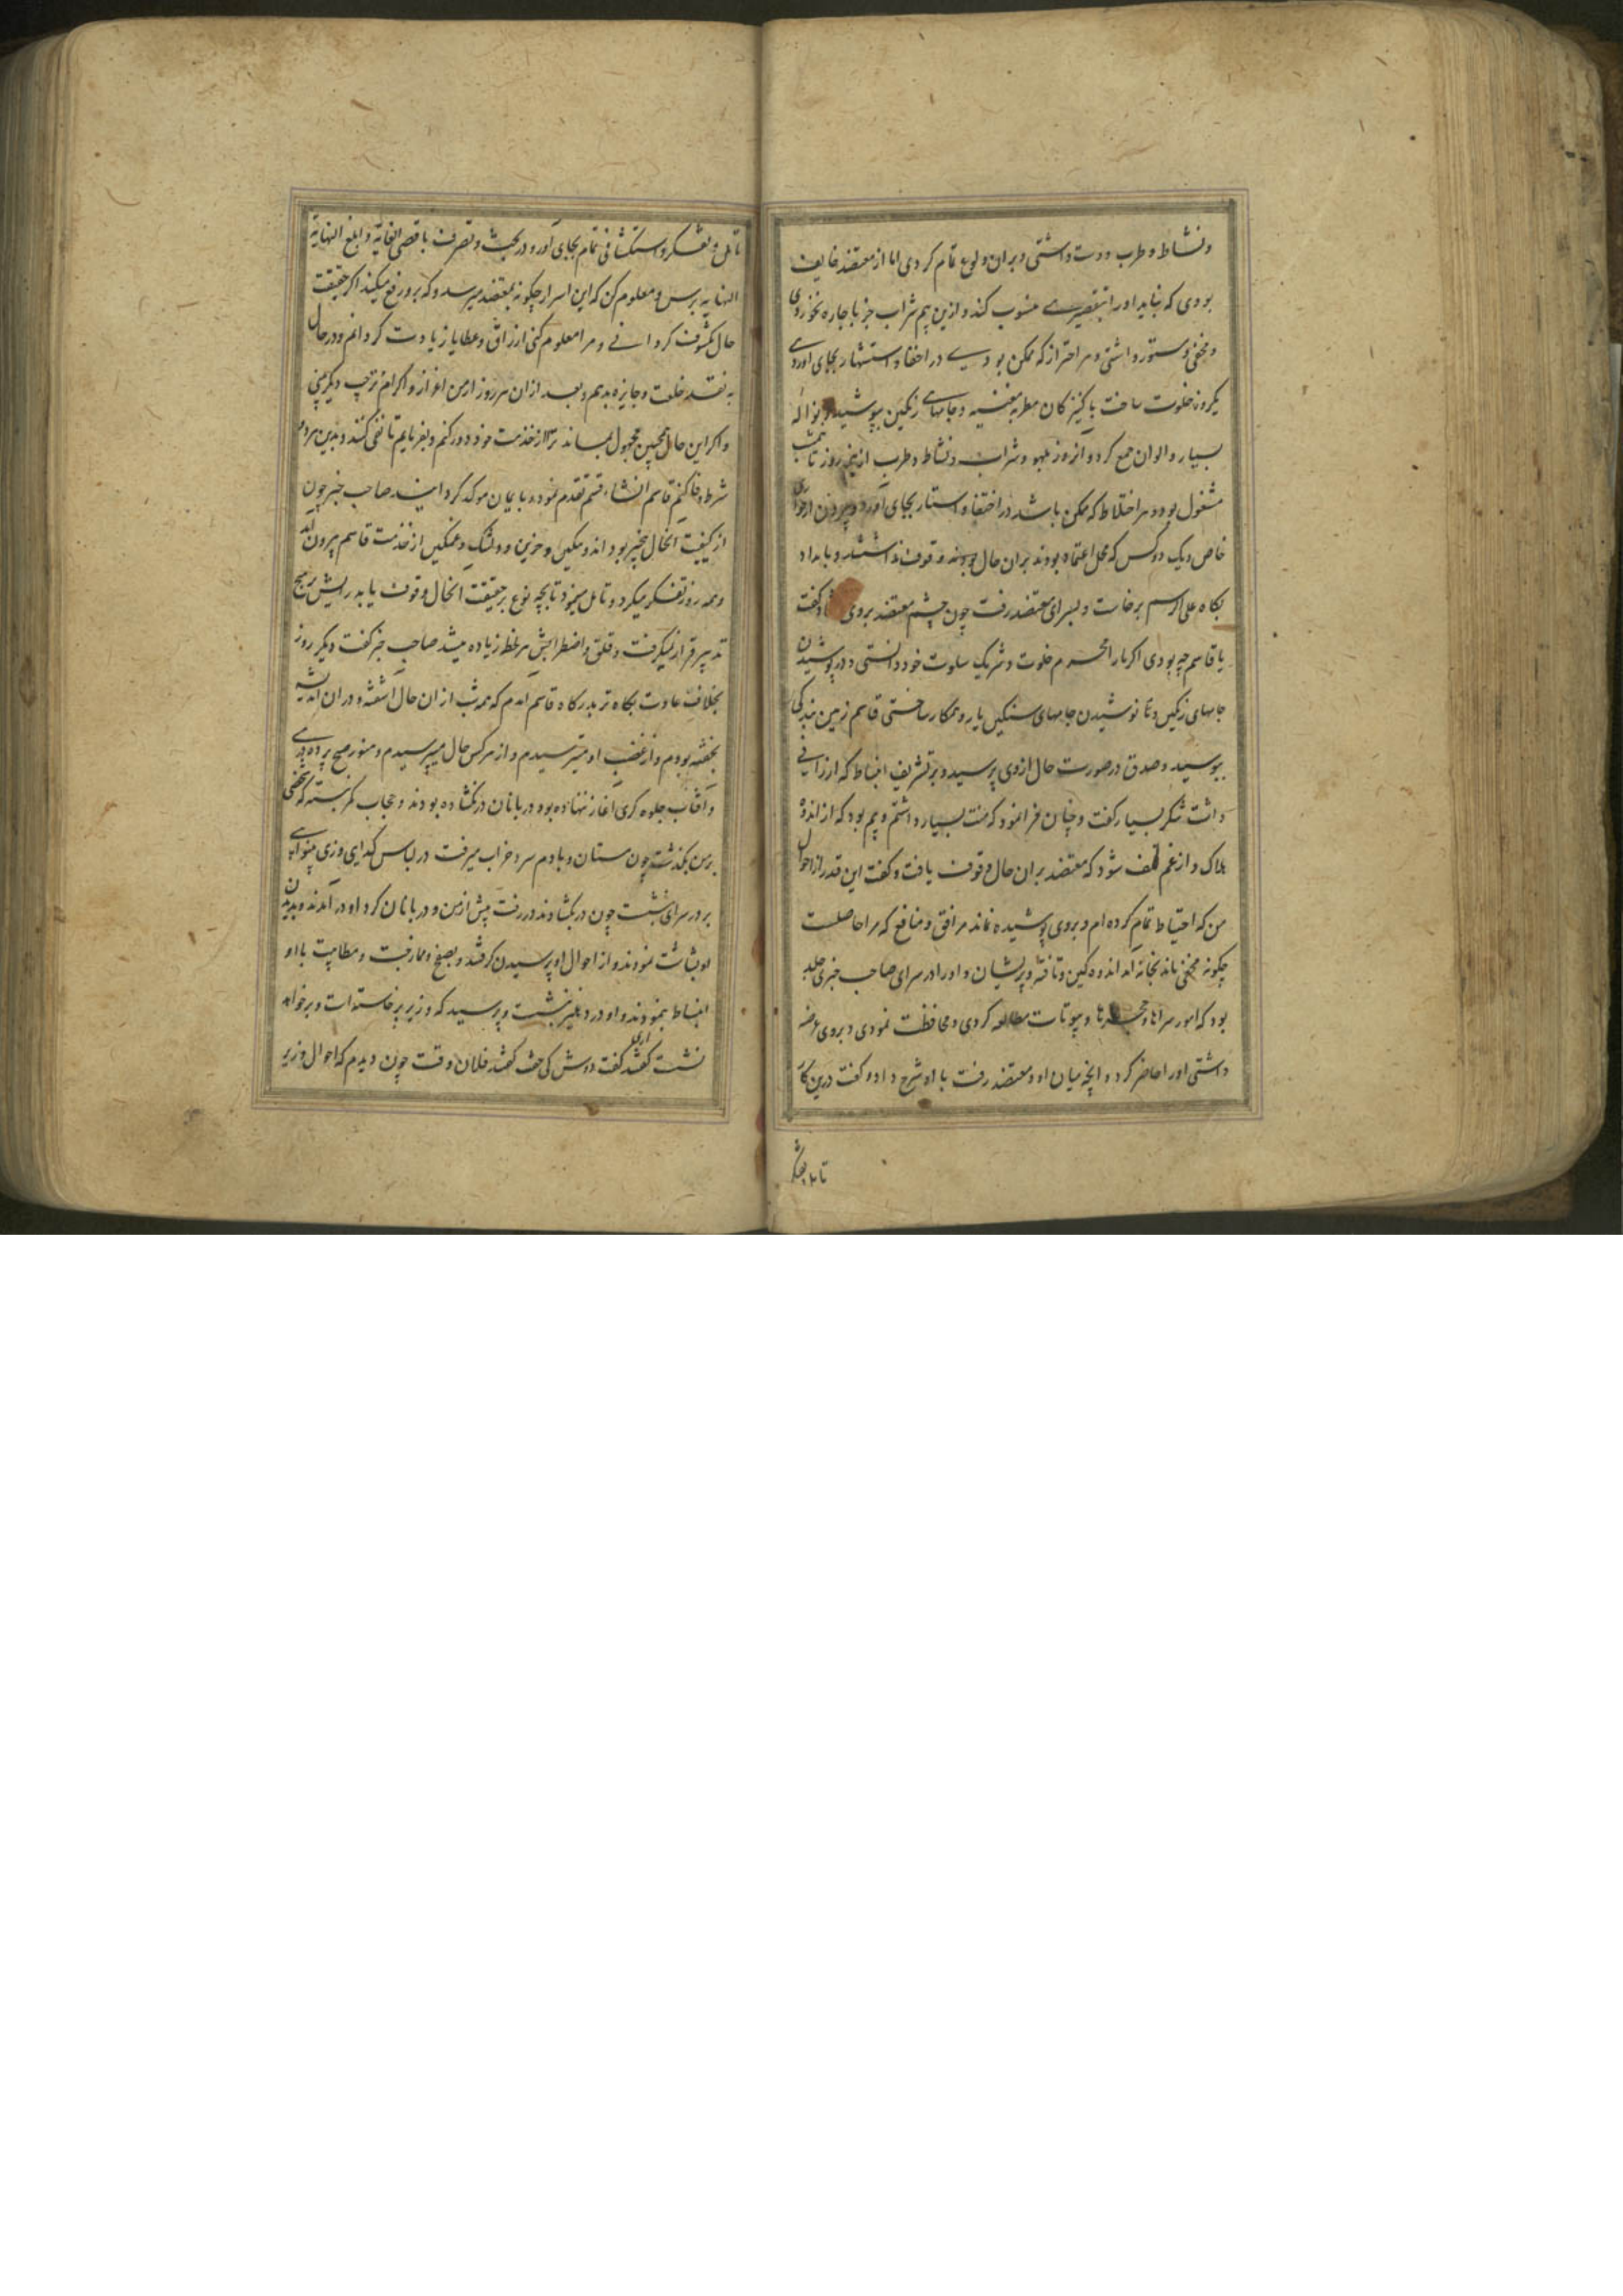 ونشاط و طرب دوست داشتی و بران ولوع تمام کردی اما از معتضد خایف
بودی که نباید او را بتقصیری منسوب کند و ازین بیم شراب جز باجاره نخوردی
و مخفی و مستور داشتی و هر احتراز که ممکن بودی در اخفا و استتار بجای آوردی
یکروز خلوت ساخت با کنیزکان مطربه مغنیه و جامهای رنگین بپوشید و فواکه
بسیار و الوان جمع کرد و آنروز بلهو و شراب و نشاط و طرب از نیم روز تا شب
مشغول بود و هر احتیاط که ممکن باشد در اختفا و استتار بجای آورد و بیرون از جواری
خاص و یک دو کس که محل اعتماد بودند بران حال وقوف نداشتند و بامداد
بگاه علی الرسم برخاست و بسرای معتضد رفت چون چشم معتضد بروی افتاد گفت
یا قاسم چه بودی اگر ما را محرم خلوت و شریک سلوت خود دانستی و در پوشیدن
جامهای رنگین و تا نوشیدن جامهای سنگین یار و همکار ساختی قاسم زمین بندگی
ببوسید و صدق در صورت حال ازوی پرسید و بر تشریف انبساط که ارزانی
داشت شکر بسیار گفت و چنان فرا نمود که منت بسیار داشتم و بیم بود که از اندوه
هلاک و از غم تلف شود که معتضد بران حال وقوف یافت و گفت این قدر از احوال
من که احتیاط تمام کرده ام و بروی پوشیده نماند مرافق و منافع که مرا حاصلست
چگونه مخفی ماند بخانه آمد اندوه گین و تافته و پریشان و او را در سرای صاحب خبری جلد
بود که امور سراها و حجرها و بیوتات مطالعه کردی و محافظت نمودی و بروی عرضه
داشتی او را حاضر کرد و آنچه میان او و معتضد رفت با او شرح داد و گفت درین کار
تامل و تفکر
تامل و تفکر و استکشافی تمام بجای آور و در بحث و تصرف باقصی الغایة و ابلغ النهایة
النهایه برس و معلوم کن که این اسرار چگونه بمعتضد میرسد و که برو رفع میکند اگر حقیقت
حال مکشوف گردانی و مرا معلوم کنی ارزاق و عطایا زیادت گردانم و در حال
به نقد خلعت و جایزه بدهم و بعد ازان هر روز از من اعزاز و اکرام و ترحیب دیگر بینی
و اگر این حال همچنین مجهول بماند ترا از خدمت خود دور کنم و بفرمایم تا نفی کنند و بدین هر دو
شرط وفا کنم قاسم انشاء قسم تقدم نمود و بایمان موکد گردانید صاحب خبر چون
از کیفیت آنحال بیخبر بود اندوهگین و حزین و دلتنگ و غمگین از خدمت قاسم بیرون آمد
و همه روز تفکر میکرد و تامل مینمود تا بچه نوع بر حقیقت آنحال وقوف یابد رایش بر هیچ
تدبیر قرار نمیگرفت و قلق و اضطرابش هر لحظه زیاده میشد صاحب خبر گفت دیگر روز
بخلاف عادت بگاه تر بدرگاه قاسم آمدم که همه شب ازان حال آشفته و دران اندیشه
نخفته بودم و از غضب او میترسیدم و از هر کس حال میپرسیدم و هنوز صبح پرده دری
و آفتاب جلوه گری آغاز ننهاده بود و دربانان در نگشاده بودند و حجاب کمر بسته که شخصی
بر من بگذشت چون مستان و بادم سرد خراب میرفت در لباس گدایی و زی بینوایی
بر در سرای بنشست چون در بگشادند در رفت پیش از من و دربانان گرد او در آمدند و بدیدن
او بشاشت نمودند و از احوال او پرسیدن گرفتند و بصفع و ممازحت و مطایبت با او
انبساط بنمودند و او در دهلیز بنشست و پرسید که وزیر برخاسته است و بر خواهد
نشست گفتند آری گفت دوش کی خفت گفتند فلان وقت چون دیدم که احوال وزیر